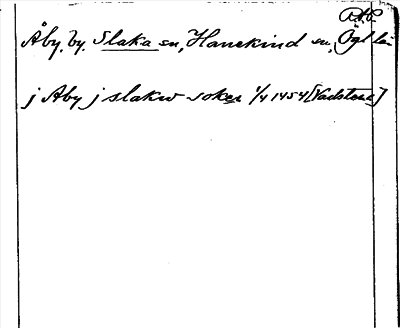 Åby, by, Slaka sn, Hanekind sn, Ögl län
j Aby j slakw soken 1/4 1454 [Vadstena]